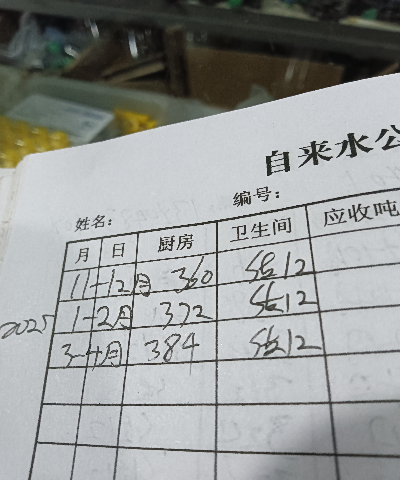 自来水公
姓名: 编号:
月 日 厨房 卫生间 应收吨
11-12月 360 12
2025 1-2月 372 12
3-4月 384 12